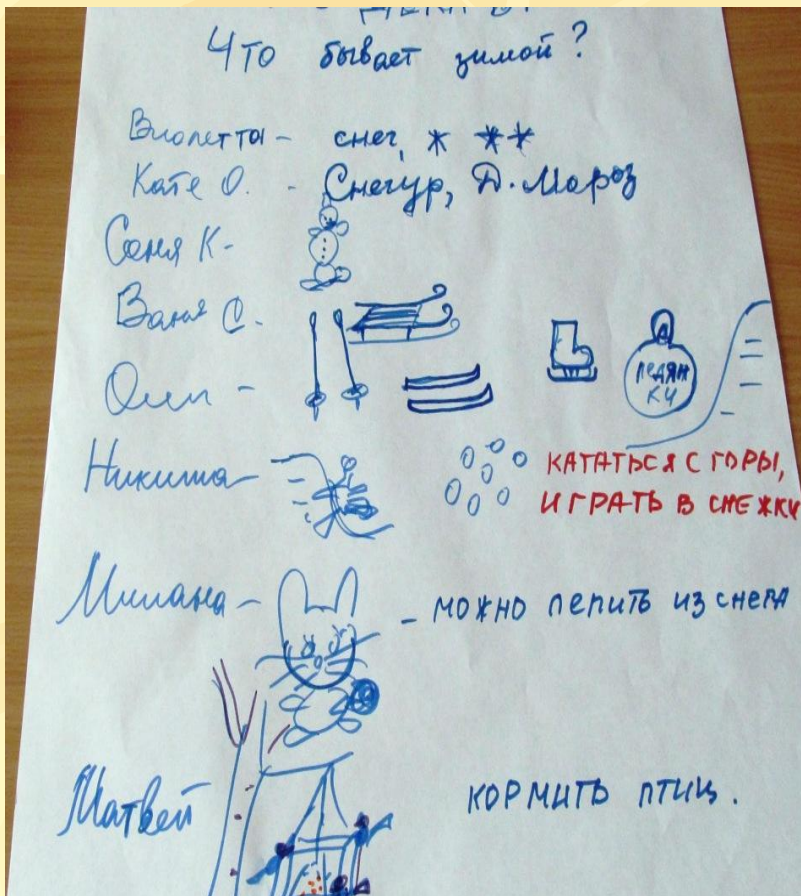 Что бывает зимой?
Виолетта - снег,
Катя О. - Снегур, Д.Мороз
Соня К-
Ваня С.
Оли -
ЛЕДЯН
КИ
Никита -
КАТАТЬСЯ С ГОРЫ,
ИГРАТЬ В СНЕЖКИ
Милана - - МОЖНО ЛЕПИТЬ ИЗ СНЕГА
Матвей КОРМИТЬ ПТИЦ.